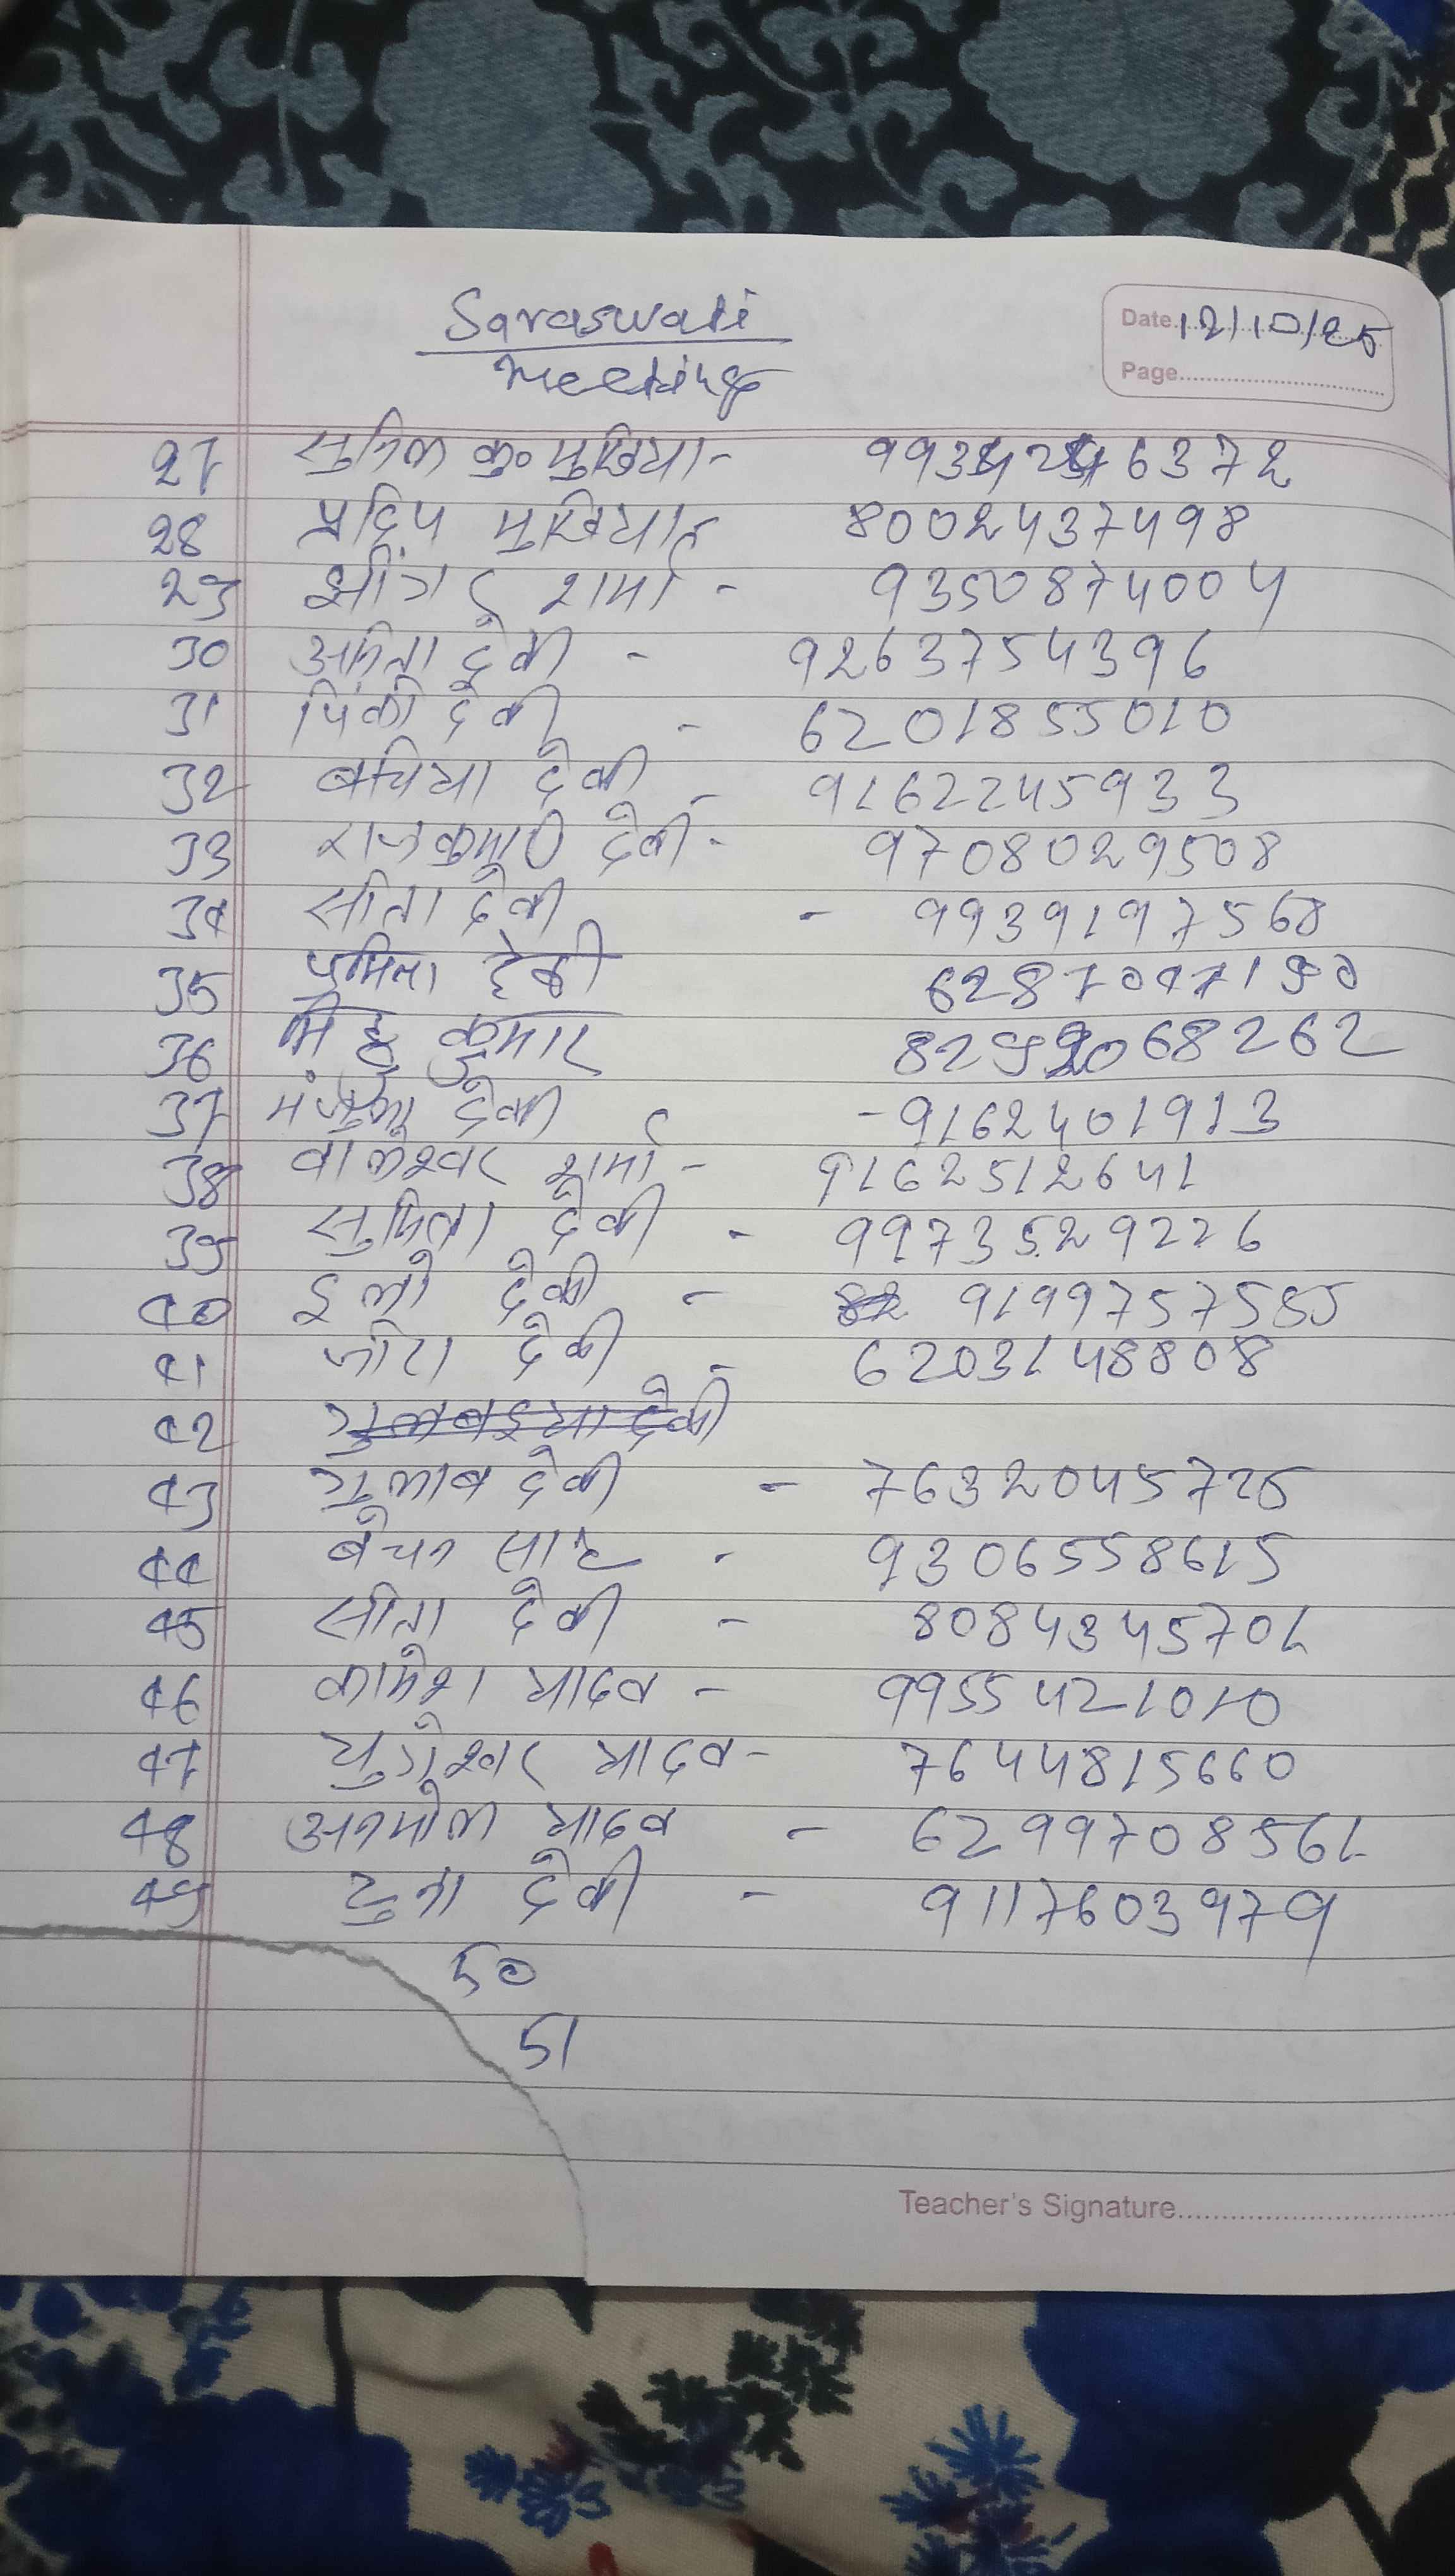 Saraswati
Meeting
Date 12/10/25
Page
27 सुनिल कु० मुखिया - 9934246372
28 प्रदिप मुखिया - 8002437498
29 शर्मा - 9350874004
30 अमिता देवी - 9263754396
31 पिंकी देवी - 6201855010
32 बचिया देवी - 9162245933
33 राजकुमारी देवी - 9708029508
34 सीता देवी - 9939197568
35 प्रमिला देवी
36 कुमार
37 देवी - 9162401913
38 वालेश्वर शर्मा - 9162512641
39 सुमित्रा देवी - 9973529226
40 इलो देवी - 9199757585
41 देवी - 6203148808
42 गुलबइया देवी
43 गुलाब देवी - 7632045725
44 बेचन साह - 9306558615
45 सीता देवी - 8084345701
46 कामेश यादव - 9955421010
47 युगेश्वर यादव - 7644815660
48 अनमोल यादव - 6299708561
49 देवी - 9117603979
50
51
Teacher's Signature